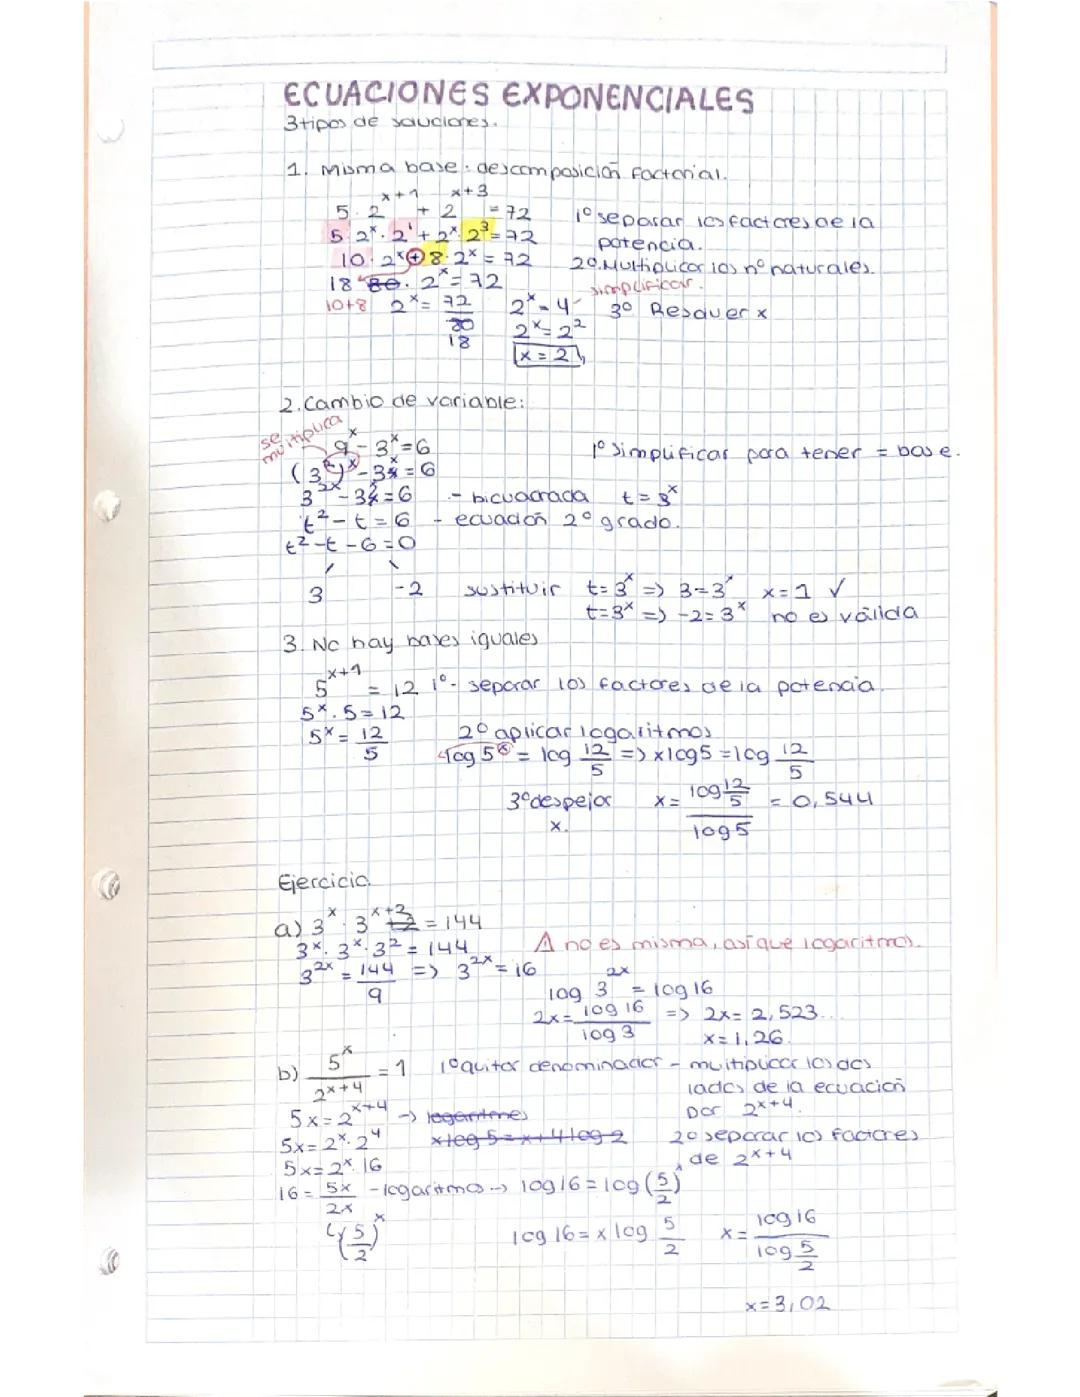 ECUACIONES EXPONENCIALES
3 tipos de soluciones.
1. Misma base: descomposición factorial.
5·2^(x+1) + 2^(x+3) = 72
5·2^x·2^1 + 2^x·2^3 = 72
1º separar los factores de la potencia.
10·2^x + 8·2^x = 72
2º Multiplicar los nº naturales.
simplificar.
18 80·2^x = 72
10+8 2^x = 72/80 18
2^x = 4
2^x = 2^2
x = 2
3º Resolver x
2. Cambio de variable:
se multiplica
9^x - 3^x = 6
1º simplificar para tener = base.
(3^2)^x - 3^x = 6
3^2x - 3^x = 6 - bicuadrada t = 3^x
t^2 - t = 6 - ecuación 2º grado.
t^2 - t - 6 = 0
3 -2 sustituir t = 3^x => 3 = 3^x x = 1 ✓
t = 3^x => -2 = 3^x no es válida
3. No hay bases iguales
5^(x+1) = 12 1º- separar los factores de la potencia.
5^x · 5 = 12
5^x = 12/5
2º aplicar logaritmos
log 5^x = log 12/5 => x log 5 = log 12/5
3º despejar x.
x = (log 12/5)/(log 5) = 0,544
Ejercicio
a) 3^x · 3^(x+2) = 144
3^x · 3^x · 3^2 = 144
⚠ no es misma, así que logaritmos.
3^2x = 144/9 => 3^2x = 16
log 3^2x = log 16
2x = log 16/log 3 => 2x = 2,523...
x = 1,26
b) 5^x/2^(x+4) = 1 1º quitar denominador - multiplicar los dos lados de la ecuación por 2^(x+4).
5x = 2^(x+4) -> logaritmos
5x = 2^x · 2^4 x log 5 = x + 4 log 2
2º separar los factores de 2^(x+4)
5x = 2^x · 16
16 = 5x/2x - logaritmos -> log 16 = log (5/2)^x
(5/2)^x
log 16 = x log 5/2
x = log 16/(log 5/2)
x = 3,02